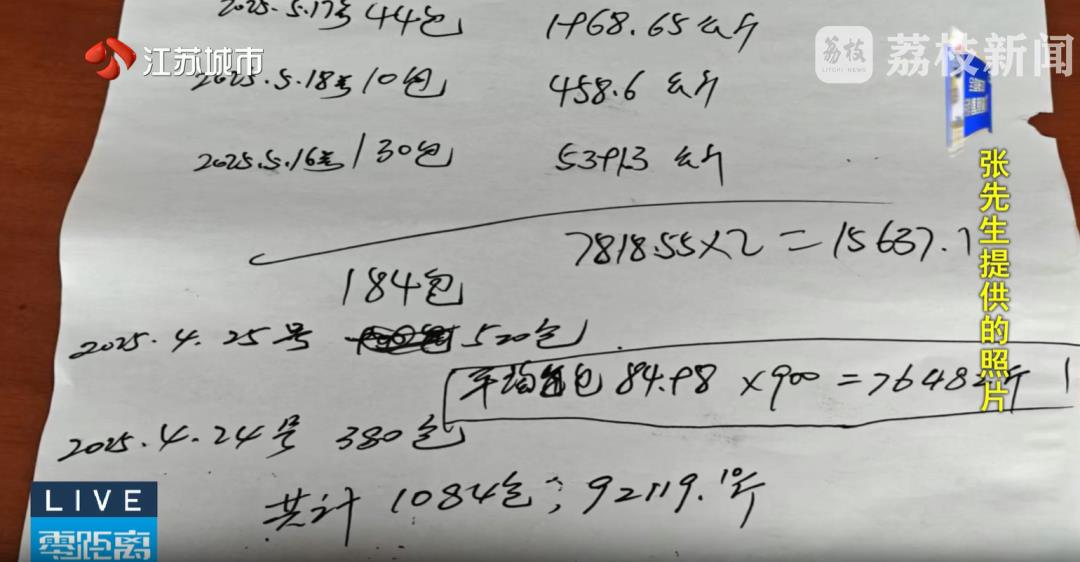 江苏城市
荔枝
LITCHI NEWS
荔枝新闻
2025.5.17号 44包 1968.65公斤
2025.5.18号 10包 458.6 公斤
2025.5.16号 130包 5391.3 公斤
7818.55×2=15637.1
184包
2025.4.25号 520包
平均每包 84.98 ×900=76482斤
2025.4.24号 380包
共计 1084包; 92119.1斤
张先生提供的照片
LIVE
零距离